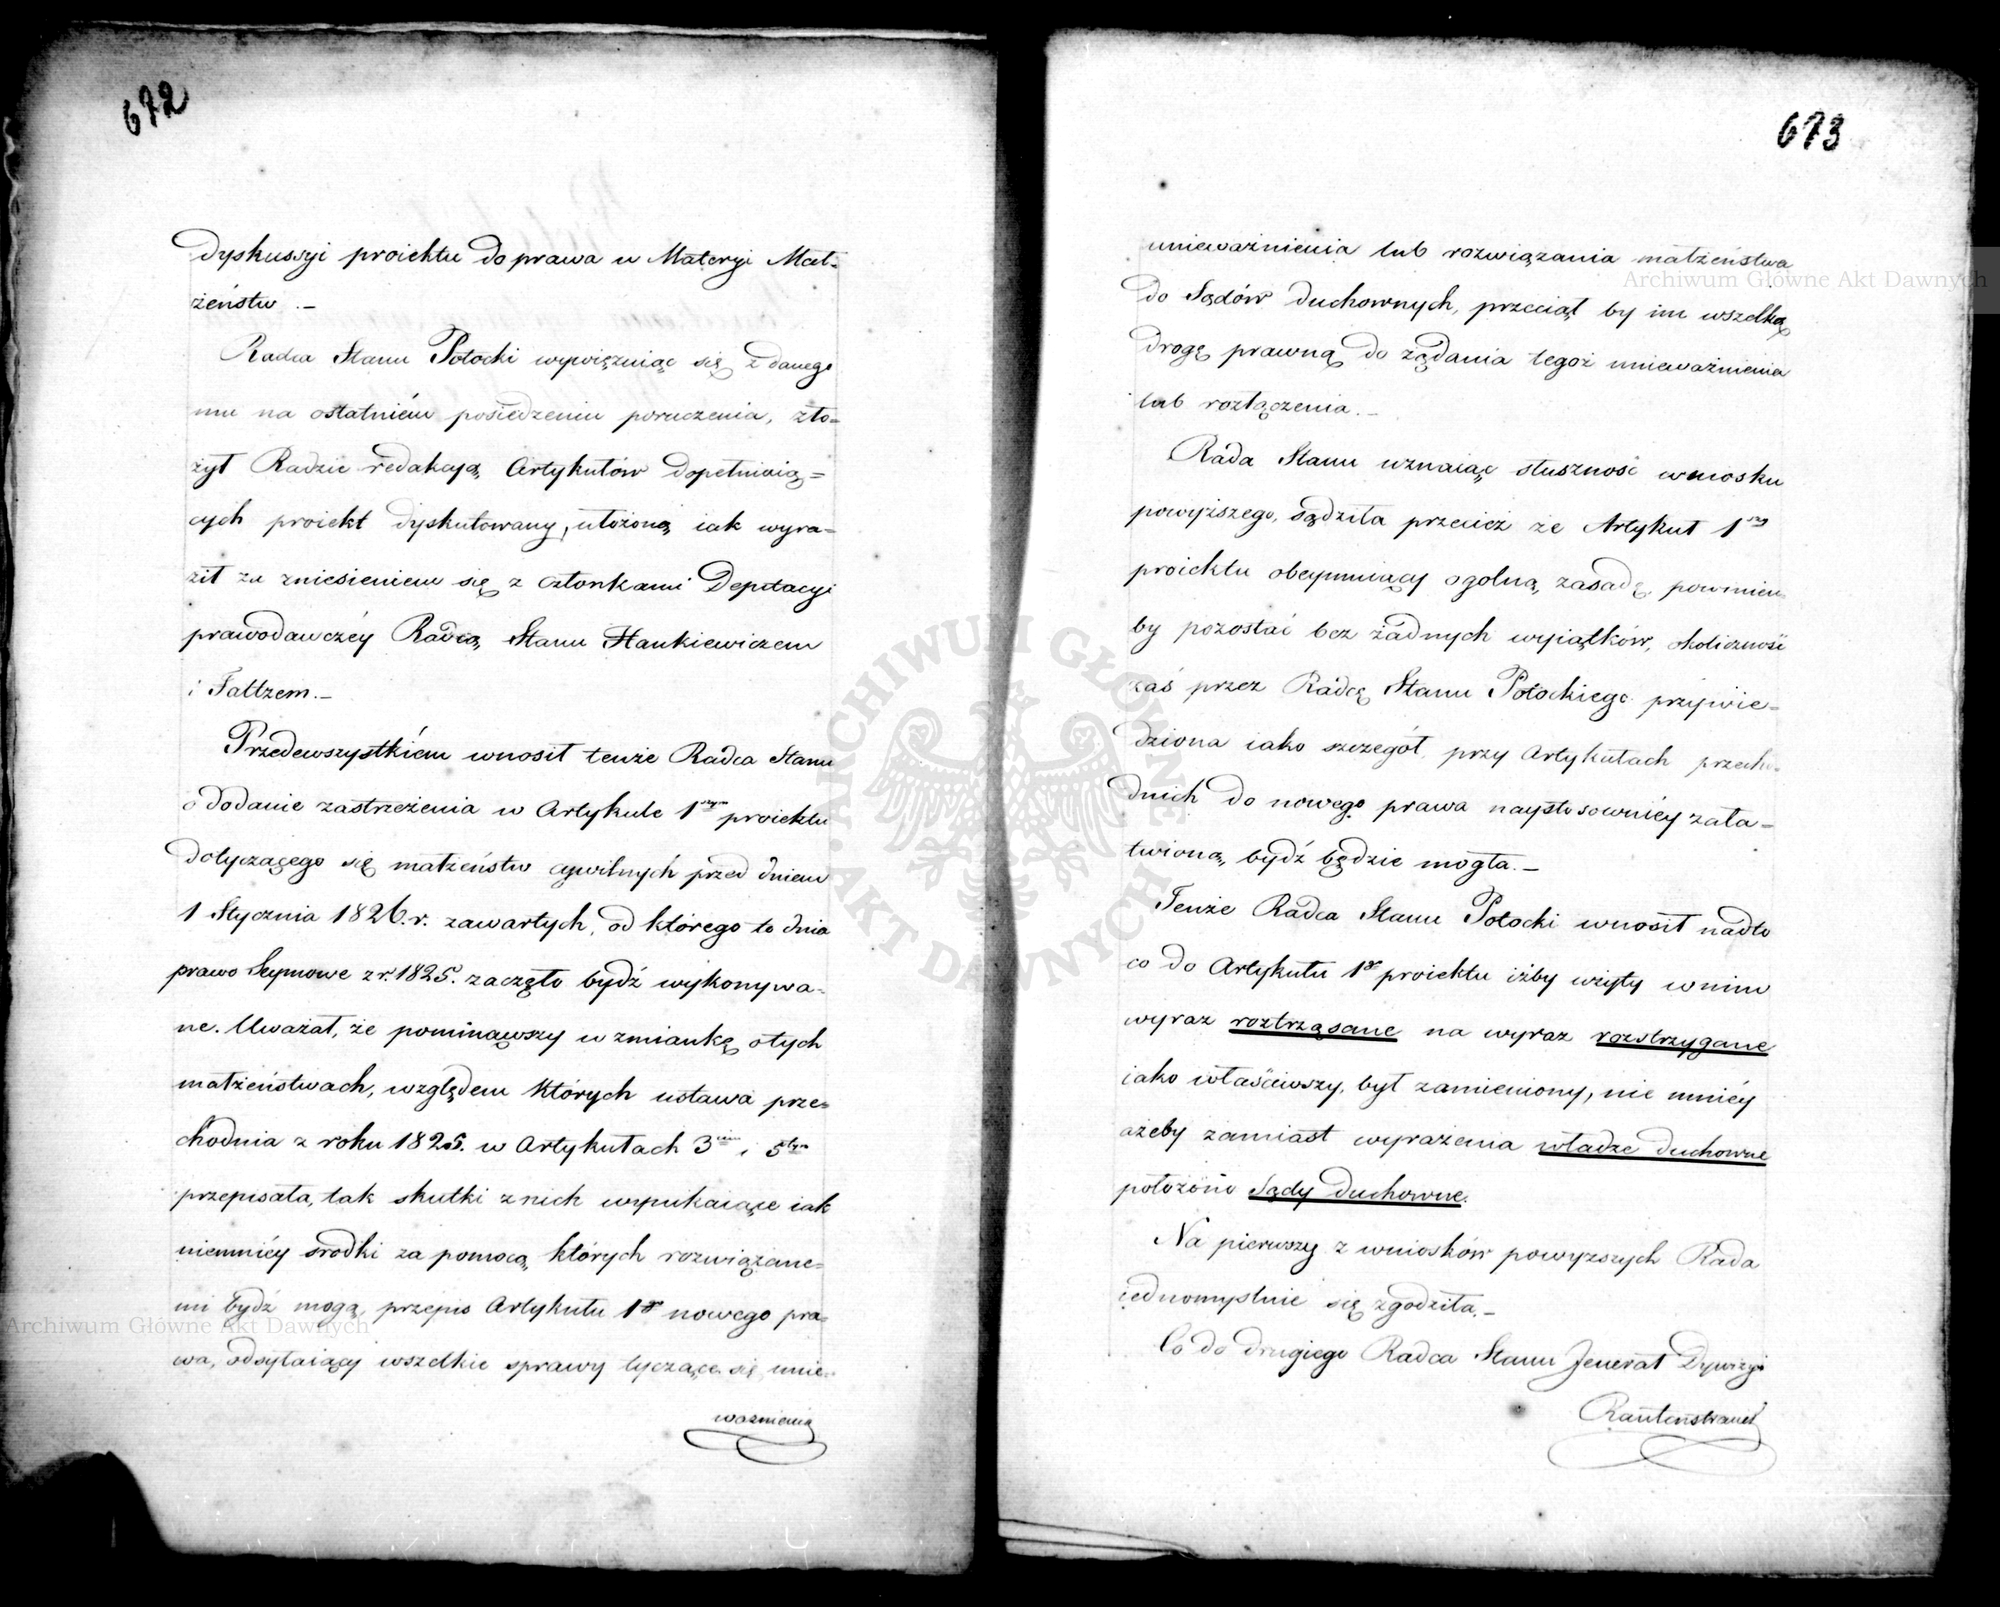 672
dyskussyi proiektu do prawa w Materyi Mał-
żeństw. –
Radca Stanu Potocki wywięzuiąc się z danego
mu na ostatniém posiedzeniu poruczenia, zło-
żył Radzie redakcyą Artykułów dopełniaią=
cych proiekt dyskutowany, ułożoną iak wyra-
ził za zniesieniem się z członkami Deputacyi
prawodawczéy Radcą Stanu Hankiewiczem
i Faltzem. –
Przedewszystkiém wnosił tenże Radca Stanu
o dodanie zastrzeżenia w Artykule 1wszym proiektu
dotyczącego się małżeństw cywilnych przed dniem
1 Stycznia 1826. r. zawartych, od którego to dnia
prawo Seymowe z r. 1825. zaczęło bydź wykonywa-
ne. Uważał, że pominąwszy wzmiankę o tych
małżeństwach, względem których ustawa prze-
chodnia z roku 1825. w Artykułach 3cim i 5tym
przepisała, tak skutki z nich wynikaiące iak
niemniéy srodki za pomocą których rozwiązane-
mi bydź mogą, przepis Artykułu 1go nowego pra-
wa, odsyłaiący wszelkie sprawy tyczące się unie-
ważnienia
673
unieważnienia lub rozwiązania małżeństwa
do Sądów duchownych, przeciął by im wszelką
drogę prawną do żądania tegoż unieważnienia
lub rozłączenia. –
Rada Stanu uznaiąc słuszność wniosku
powyższego, sądziła przecież że Artykuł 1szy
proiektu obeymuiący ogolną zasadę, powinien
by pozostać bez żadnych wyiątków, okoliczność
zaś przez Radcę Stanu Potockiego przywie-
dziona iako szczegół przy Artykułach przecho-
dnich do nowego prawa naystosowniéy zała-
twioną bydź będzie mogła. –
Tenże Radca Stanu Potocki wnosił nadto
co do Artykułu 1go proiektu iżby użyty w nim
wyraz roztrząsane na wyraz rozstrzygane
iako właściwszy, był zamieniony, nie mniéy
ażeby zamiast wyrażenia władze duchowne
położono Sądy duchowne.
Na pierwszy z wniosków powyższych Rada
iednomyślnie się zgodziła. –
Co do drugiego Radca Stanu Jenerał Dywizyi
Rautenstrauch
Archiwum Główne Akt Dawnych
Archiwum Główne Akt Dawnych
ARCHIWUM GŁÓWNE AKT DAWNYCH